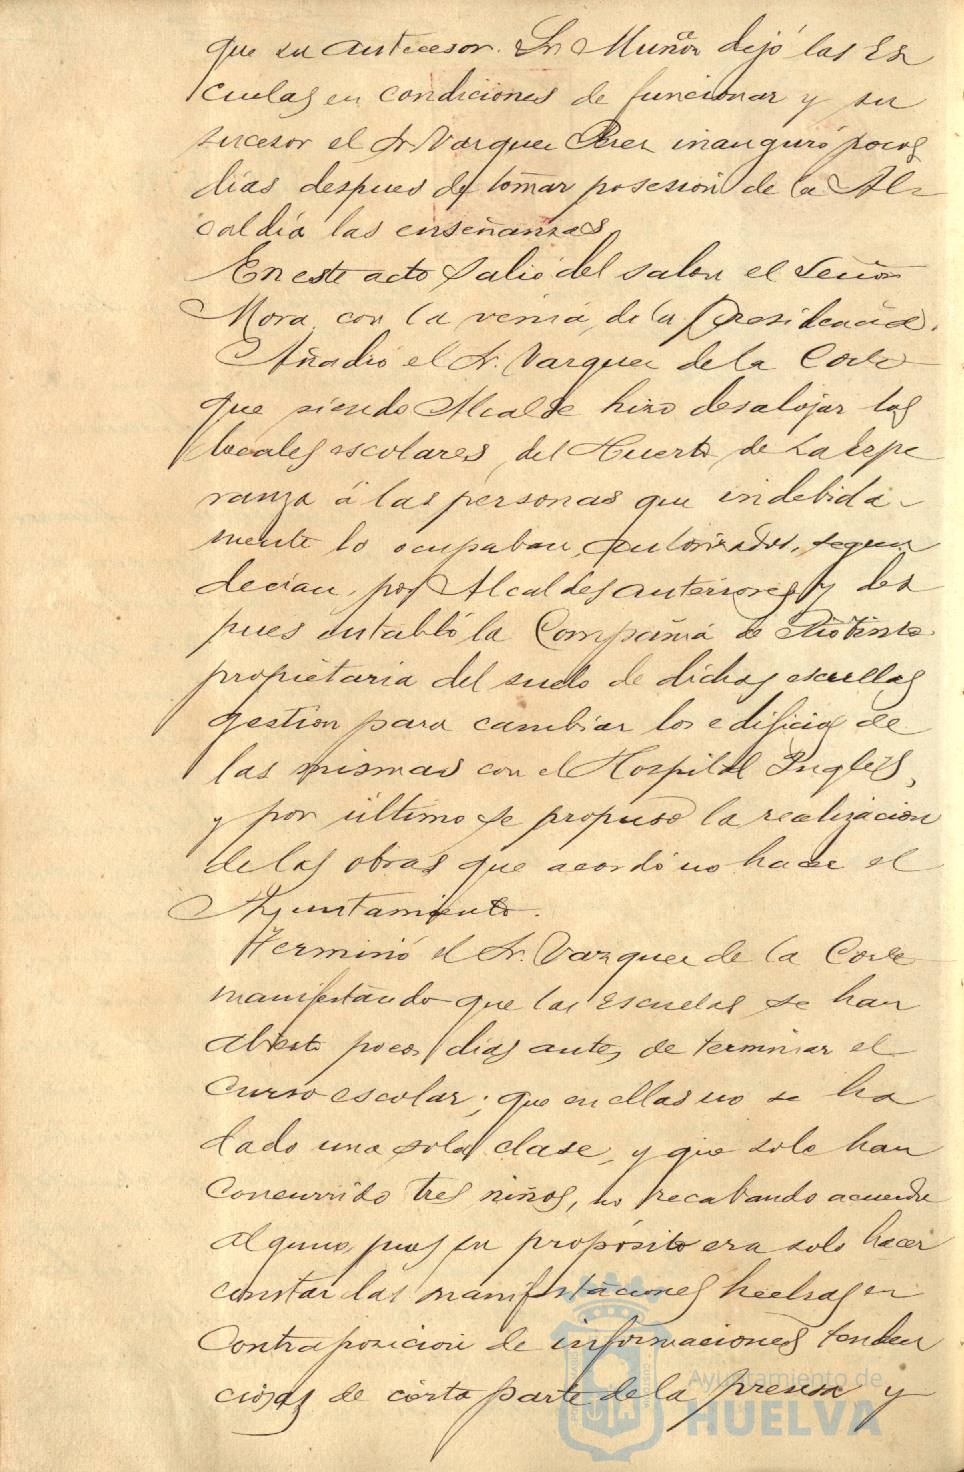 que su antecesor. Sr. Muñoz dejó las Es
cuelas en condiciones de funcionar y su
sucesor el Sr. Vazquez Perez inauguró pocos
dias despues de tomar posesión de la Al-
caldía las enseñanzas
En este acto salió del salon el Señor
Mora, con la venia de la Presidencia.
Añadió el Sr. Vazquez de la Corte
que siendo Alcalde hizo desalojar los
locales escolares del Huerto de La Espe
ranza á las personas que indebida-
mente lo ocupaban, autorizados, segun
decian, por Alcaldes anteriores y des
pues entabló la Compañía de Riotinto
propietaria del suelo de dichas escuelas
gestion para cambiar los edificios de
las mismas con el Hospital Inglés,
y por último se propuso la realizacion
de las obras que acordó no hacer el
Ayuntamiento.
Terminó el Sr. Vazquez de la Corte
manifestando que las Escuelas se han
abierto pocos dias antes de terminar el
curso escolar; que en ellas no se ha
dado una sola clase, y que solo han
concurrido tres niños, no recabando acuerdo
alguno, pues su propósito era solo hacer
constar las manifestaciones hechas en
contraposicion de informaciones tenden
ciosas de cierta parte de la prensa y
Ayuntamiento de
HUELVA